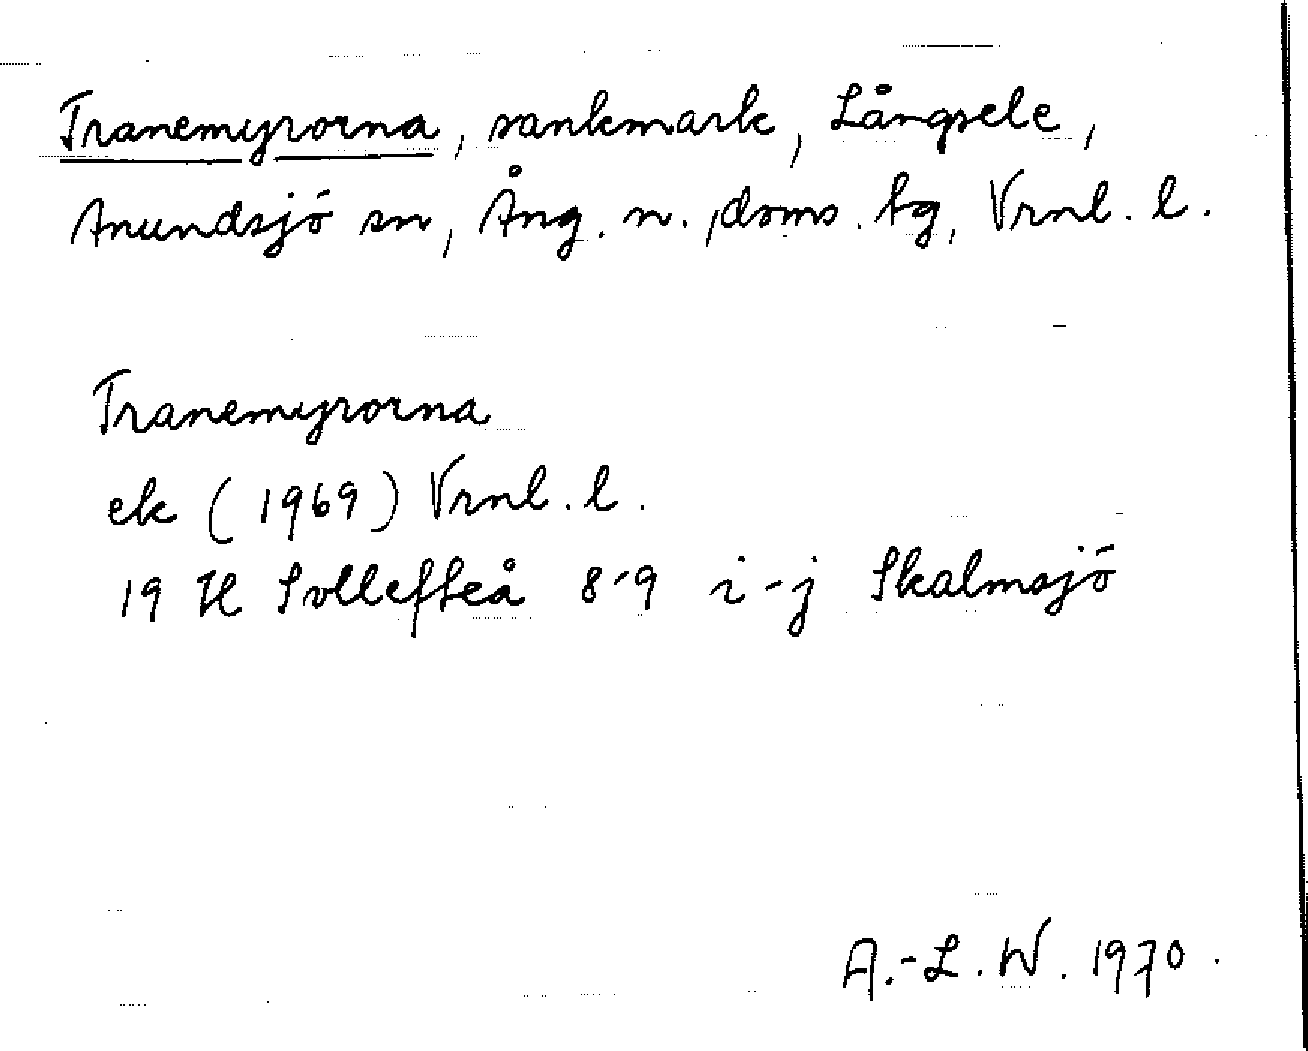 Tranemyrorna, sankmark, Långsele,
Anundsjö sn, Ång. n. doms. tg, Vrnl. l.
Tranemyrorna
ek (1969) Vrnl. l.
19 H Sollefteå 8-9 i-j Skalmsjö
A.-L. W. 1970.